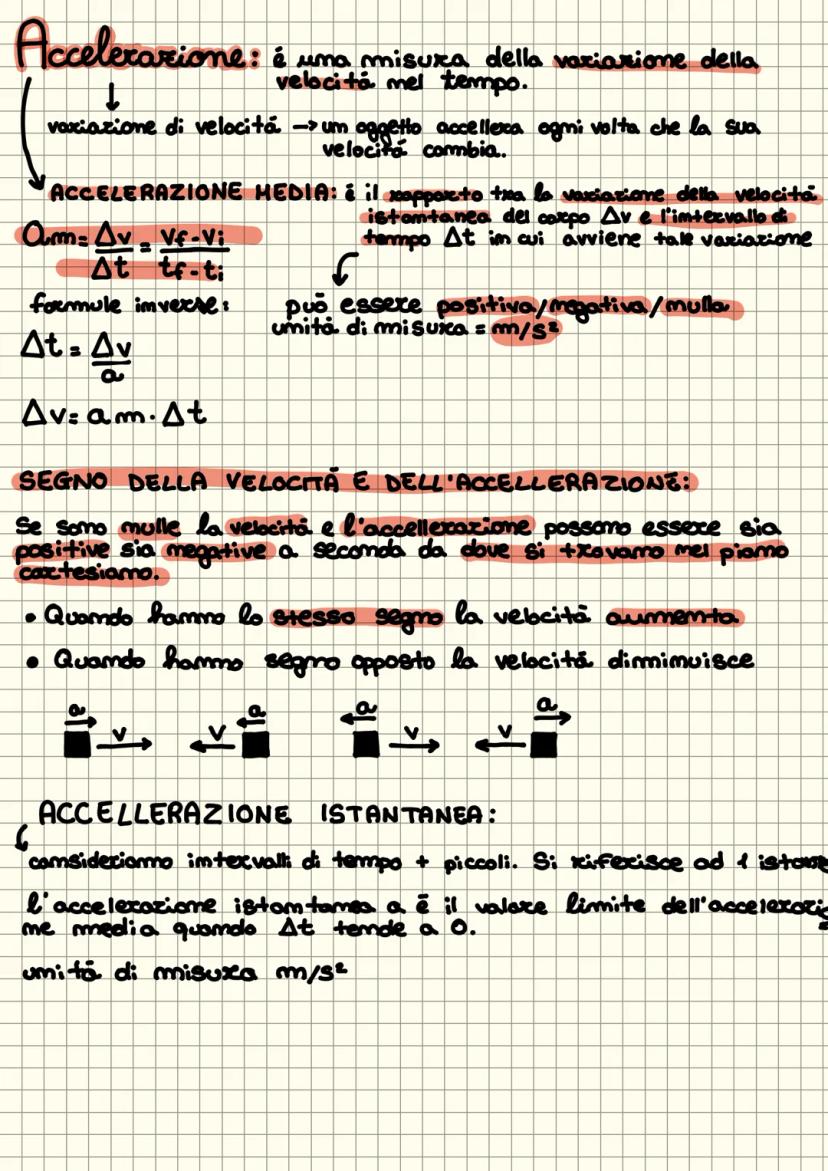 Accelerazione: é una misura della variazione della
velocitá nel tempo.
variazione di velocitá → un oggetto accellera ogni volta che la sua
velocitá cambia.
ACCELERAZIONE MEDIA: é il rapporto tra la variazione della velocitá
istantanea del corpo Δv e l'intervallo di
tempo Δt in cui avviene tale variazione
am = Δv/Δt = vf-vi/tf-ti
formule inverse:
può essere positiva/negativa/nulla
unitá di misura = m/s²
Δt = Δv/a
Δv = am · Δt
SEGNO DELLA VELOCITÁ E DELL'ACCELLERAZIONE:
Se sono nulle la velocitá e l'accellerazione possono essere sia
positive sia negative a seconda da dove si trovano nel piano
cartesiano.
• Quando hanno lo stesso segno la velocitá aumenta
• Quando hanno segno opposto la velocitá dinminuisce
a a a a
v v v v
ACCELLERAZIONE ISTANTANEA:
consideriamo intervalli di tempo + piccoli. Si riferisce ad 1
l'accelerazione istantanea a é il valore limite dell'accelerazio
ne media quando Δt tende a 0.
unitá di misura m/s²